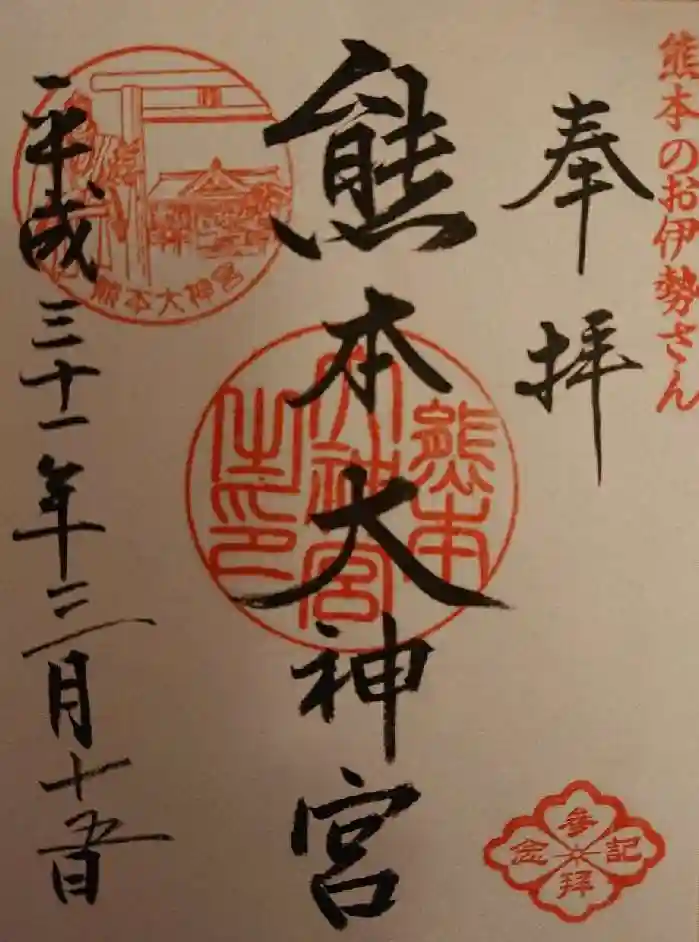 熊本のお伊勢さん
奉拝
熊本大神宮
熊本
大神宮
之印
平成三十一年二月十五日
熊本大神宮
参拝記念